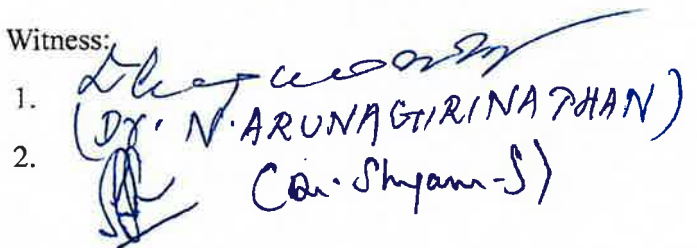 Witness:
1.
(Dr. N. ARUNAGIRINATHAN)
2. Shyam-S)